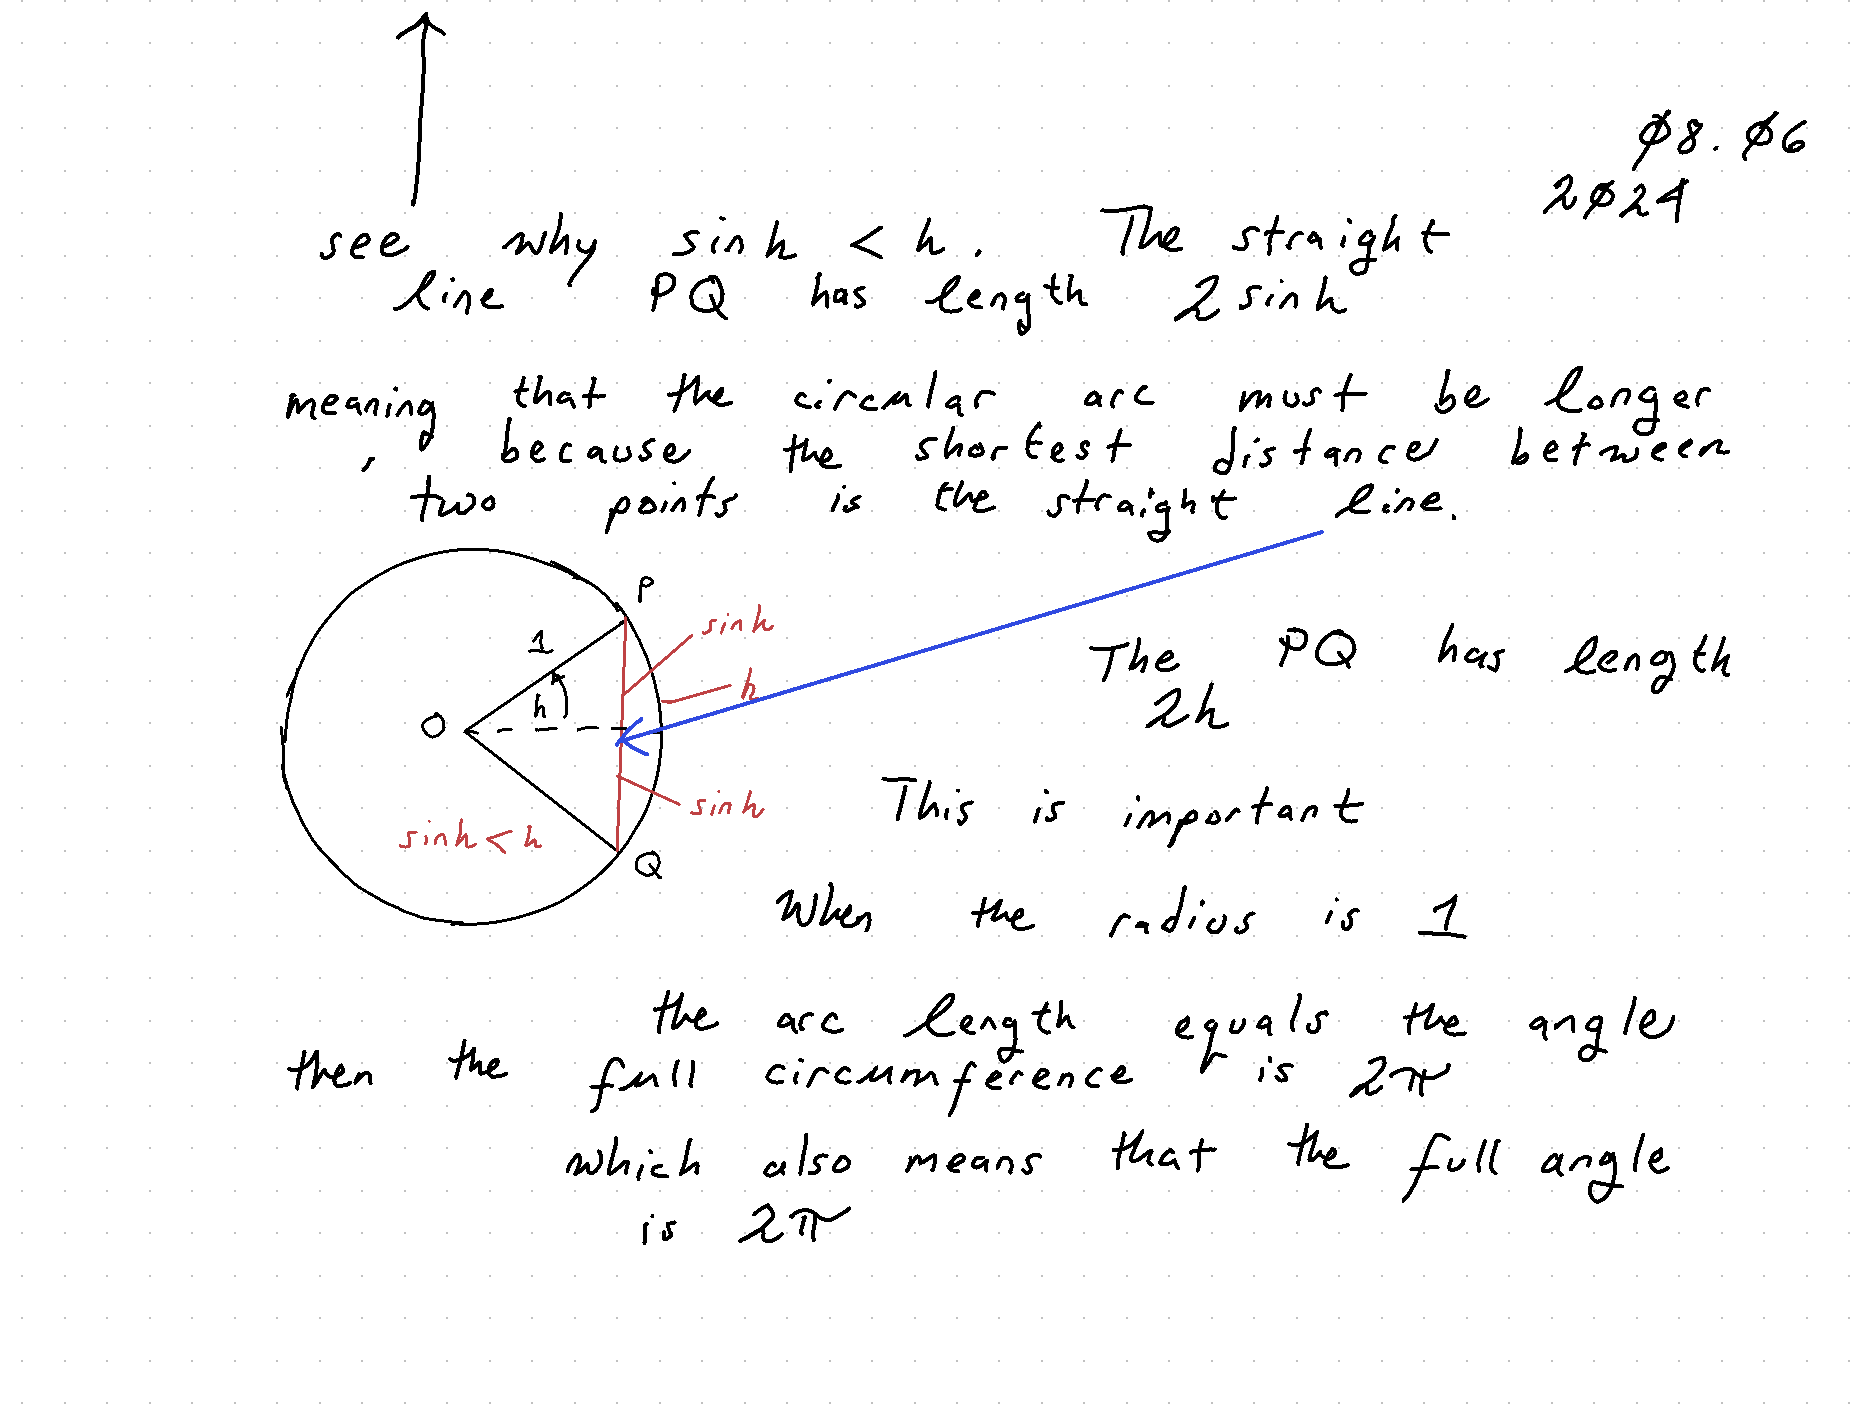 ø8. ø6
2ø24
see why sin h < h. The straight
line PQ has length 2 sin h
meaning that the circular arc must be longer
, because the shortest distance between
two points is the straight line.
P
sin h
1
h
h
O
sin h
sin h < h
Q
The PQ has length
2h
This is important
When the radius is 1
the arc length equals the angle
then the full circumference is 2π
which also means that the full angle
is 2π